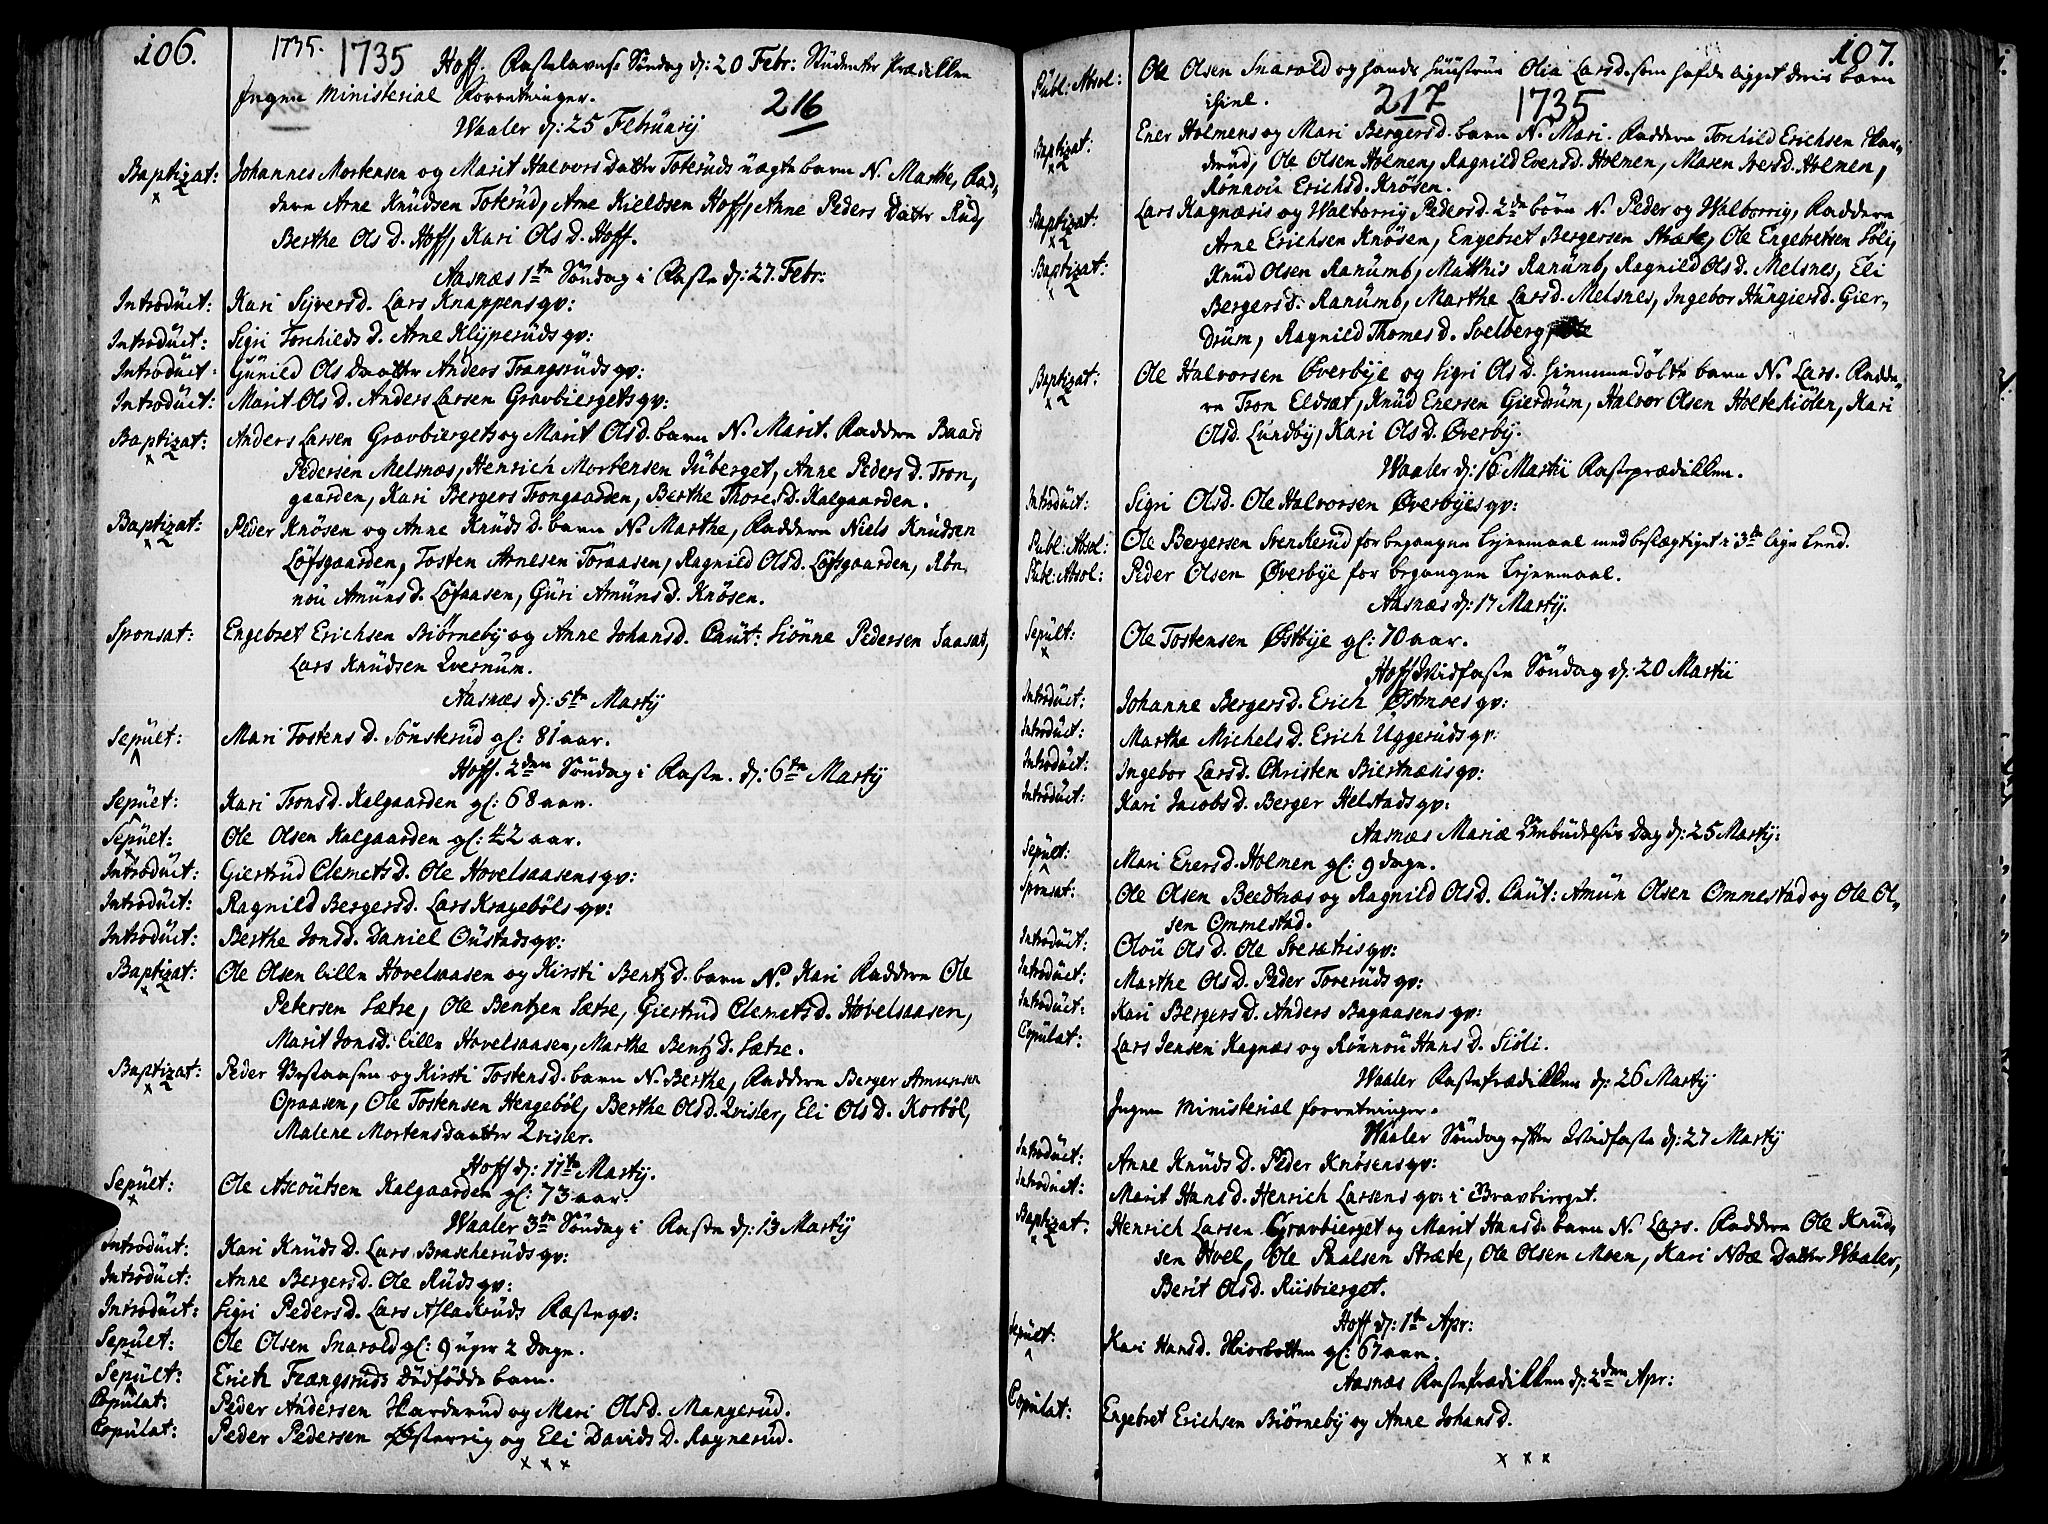 106.
1735. 1735 Hoff. Fastelavens Söndag d: 20 Febr: Studenter Prædikken
Ingen Ministerial Forretninger. 216
Waaler d: 25 Februarij
Baptizat: Johannes Mortensen og Marit Halvors Datter Tokeruds uægte barn N. Marthe, Fad-
dere Arne Knudsen Tokerud, Arne Kieldsen Hoff, Anne Peders Datter Rud,
Berthe Ols D. Hoff, Kari Ols D. Hoff.
Aasnæs 1te Söndag i Faste d: 27 Febr:
Introduct: Kari Sijvers D. Lars Knappens qv:
Introduct: Sigri Torchilds D. Arne Klijperuds qv:
Introduct: Gunild Ols Daatter Anders Frangsruds qv:
Introduct: Marit Ols D. Anders Larsen Gravbiergets qv:
Baptizat: Anders Larsen Gravbiergets og Marit Ols D. barn N. Marit. Faddere Baard
Pedersen Melsnæs, Henrich Mortensen Juberget, Anne Peders D. Tron,
gaarden, Kari Bergers Trongaarden, Berthe Thores D. Kalgaarden.
Baptizat: Peder Knösen og Anne Knuds D. barn N. Marthe, Faddere Niels Knudsen
Löfsgaarden, Tosten Arnesen Toraasen, Ragnild Ols D. Löfsgaarden, Rön-
nou Amuns D. Löfaasen, Guri Amuns D. Knösen.
Sponsat: Engebret Erichsen Biørneby og Anne Johans D. Caut: Siönne Pedersen Saasat,
Lars Knudsen Qvernum.
Aasnæs d: 5te Martij
Sepult: Mari Tostens D. Sönsterud gl: 81 aar.
Hoff. 2den Söndag i Faste. d: 6te Martij
Sepult: Kari Trons D. Kalgaarden gl: 68 aar.
Sepult: Ole Olsen Kalgaarden gl: 42 aar.
Introduct: Giertrud Clemets D. Ole Hovelsaasens qv:
Introduct: Ragnild Bergers D. Lars Kragebøls qv:
Introduct: Berthe Jons D. Daniel Oustads qv:
Baptizat: Ole Olsen lille Hovelsaasen og Kirsti Bentz D. barn N. Kari Faddere Ole
Petersen Sætre, Ole Bentzen Sætre, Giertrud Clemets D. Hovelsaasen,
Marit Jons D. lille Hovelsaasen, Marthe Bentz D. Sætre.
Baptizat: Peder og Kirsti Tostens D. barn N. Berthe, Faddere Berger Amunsen
Opaasen, Ole Tostensen Hengebøl, Berthe Ols D. Qvisler, Eli Ols D. Korbøl,
Malene Mortens Daatter Qvisler.
Hoff d: 11te Martij.
Sepult: Ole Ascoutsen Kalgaarden gl: 73 aar.
Waaler 3te Söndag i Faste d: 13 Martij
Introduct: Kari Knuds D. Lars Brascheruds qv:
Introduct: Anne Bergers D. Ole Ruds qv:
Introduct: Sigri Peders D. Lars Aslakruds Faste qv:
Sepult: Ole Olsen Snarold gl: 9 uger 2 Dage.
Sepult: Erich Frangsruds Dödfödde barn.
Copulat: Peder Andersen Harderud og Mari Ols D. Mangerud.
Copulat: Peder Pedersen Østerrig og Eli Davids D. Ragnerud.
x x x
107.
Publ: Absol: Ole Olsen Snarold og hands Huustrue Olia Lars D. som hafde ligget deris barn
ihiel. 217 1735
Baptizat: Ener Holmens og Mari Bergers D. barn N. Mari. Faddere Torchild Erichsen Har-
derud, Ole Olsen Holmen, Ragnild Evens D. Holmen, Maren Ivers D. Holmen,
Rönnou Erichs D. Knösen.
Baptizat: Lars Kagnæsis og Walborrig Peders D. 2de börn N. Peder og Walborrig, Faddere
Arne Erichsen Knösen, Engebret Bergersen Stræte, Ole Engebretsen Söli,
Baptizat: Knud Olsen Ranumb, Matthis Ranumb, Ragnild Ols D. Melsnes, Eli
Bergers D. Ranumb, Marthe Lars D. Melsnes, Ingebor Hungiers D. Gier-
drum, Ragnild Thomes D. Svelberg,
Baptizat: Ole Halvorsen Øverbye og Sigri Ols D. hiemmedöbte barn N. Lars. Fadde-
re Tron Eldsæt, Knud Enersen Gierdrum, Halvor Olsen Holtekiölen, Kari
Ols D. Lundby, Kari Ols D. Øverby.
Waaler d: 16 Martii Fasteprædikken.
Introduct: Sigri Ols D. Ole Halvorsen Øverbyes qv:
Publ: Absol: Ole Bergersen Svenkerud for begangen Lejermaal med besligtiget i 3de lige Leed.
Publ: Absol: Peder Olsen Øverbye for begangen Lejermaal.
Aasnæs d: 17 Martij.
Sepult: Ole Tostensen Østbye gl: 70 aar.
Hoff Midfaste Söndag d: 20 Martii
Introduct: Johanne Bergers D. Erich Østmoes qv:
Introduct: Marthe Michels D. Erich Uggeruds qv:
Introduct: Ingebor Lars D. Christen Biertnæsis qv:
Introduct: Kari Jacobs D. Berger Helstads qv:
Aasnæs Mariæ Bebudelsis Dag d: 25 Martij:
Sepult: Mari Eners D. Holmen gl: 9 Dage.
Sponsat: Ole Olsen Beedtnæs og Ragnild Ols D. Caut: Amun Olsen Ommestad og Ole Ol-
sen Ommestad.
Introduct: Olou Ols D. Ole Strætis qv:
Introduct: Marthe Ols D. Peder Toveruds qv:
Introduct: Kari Bergers D. Anders Bagaasens qv:
Copulat: Lars Jensen Kagnæs og Rönnou Hans D. Siöli.
Waaler Fasteprædikken d: 26 Martij
Ingen Ministerial forretninger.
Waaler Söndag efter Midfaste d: 27 Martij
Introduct: Anne Knuds D. Peder Knösens qv:
Introduct: Marit Hans D. Henrich Larsens qv: i Gravbierget.
Baptizat: Henrich Larsen Gravbierget og Marit Hans D. barn N. Lars. Faddere Ole Knud,
sen Hoel, Ole Paalsen Stræte, Ole Olsen Moen, Kari Noæ Datter Waaler,
Berit Ols D. Riisbierget.
Hoff d: 1te Apr:
Sepult: Kari Hans D. Hiosbotten gl: 67 aar.
Aasnæs Fasteprædikken d: 2den Apr:
Copulat: Engebret Erichsen Biørneby og Anne Johans D.
x x x